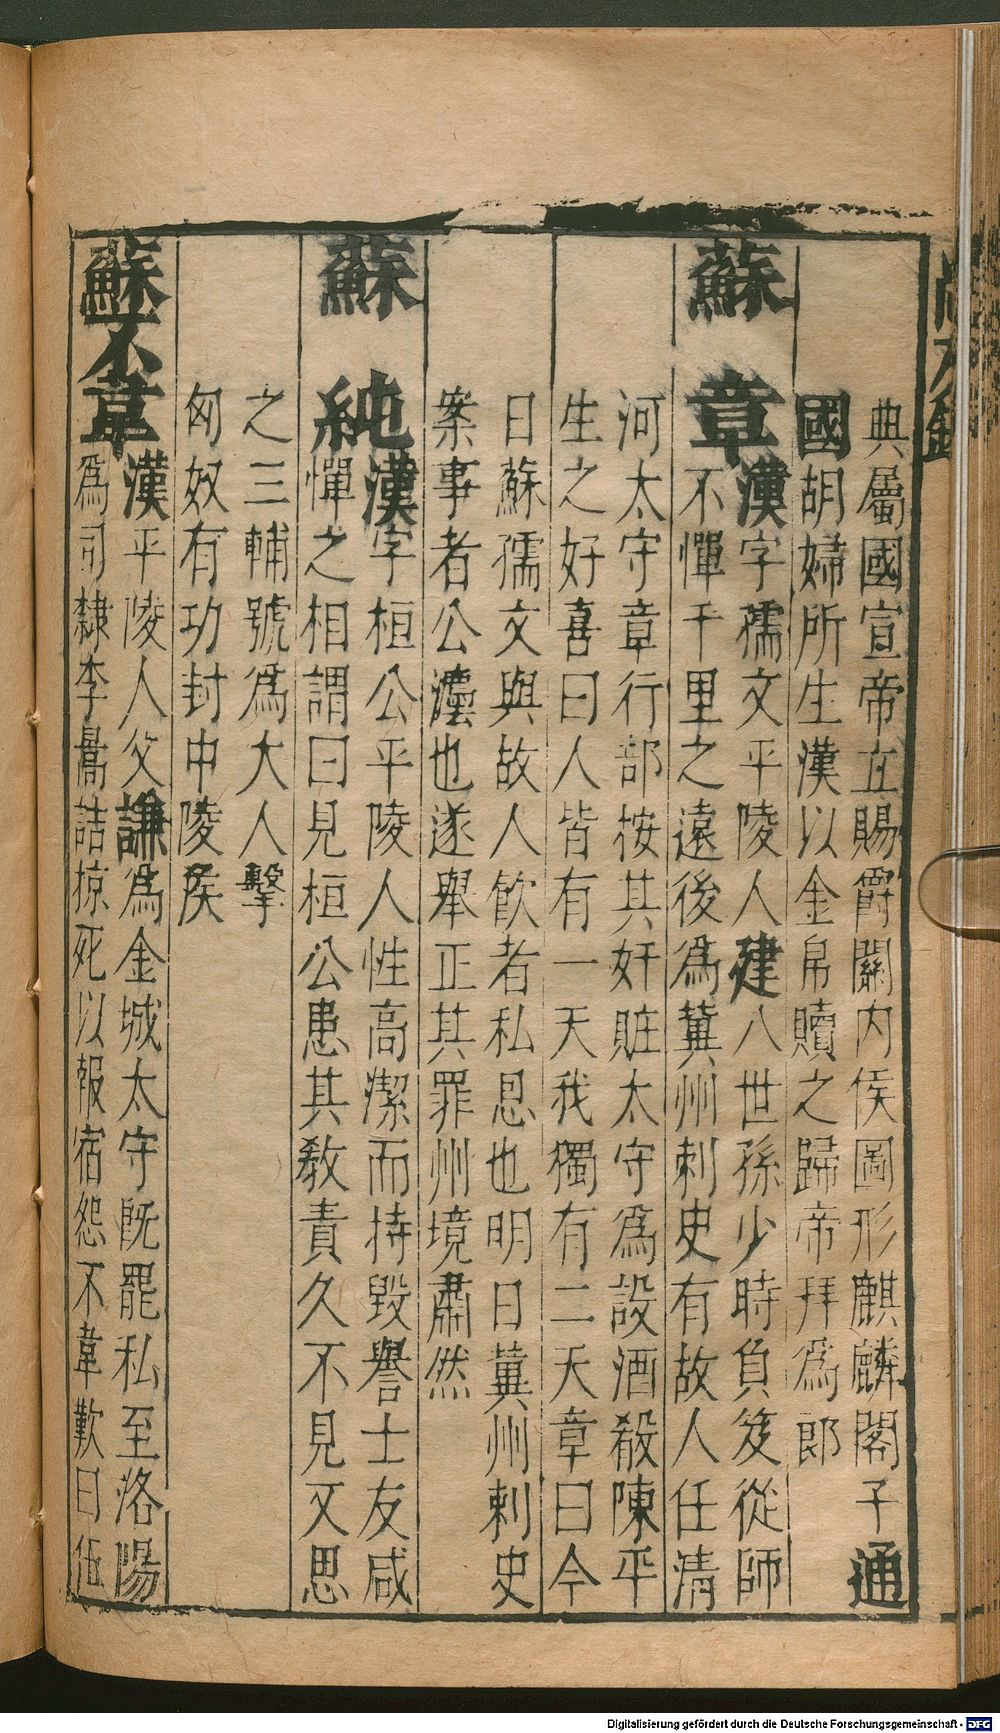 典屬國宣帝立賜爵關內侯圖形麒麟閣子通
國胡婦所生漢以金帛贖之歸帝拜爲郎
蘇章漢字孺文平陵人建八世孫少時負笈從師
不憚千里之遠後爲冀州刺史有故人任清
河太守章行部按其奸贓太守爲設酒殽陳平
生之好喜曰人皆有一天我獨有二天章曰今
日蘇孺文與故人飲者私恩也明日冀州刺史
案事者公灋也遂舉正其罪州境肅然
蘇純漢字桓公平陵人性高潔而持毀譽士友咸
憚之相謂曰見桓公患其教責久不見又思
之三輔號爲大人擊
匈奴有功封中陵侯
蘇不韋漢平陵人父謙爲金城太守既罷私至洛陽
爲司隸李暠詰掠死以報宿怨不韋歎曰伍
Digitalisierung gefördert durch die Deutsche Forschungsgemeinschaft - DFG